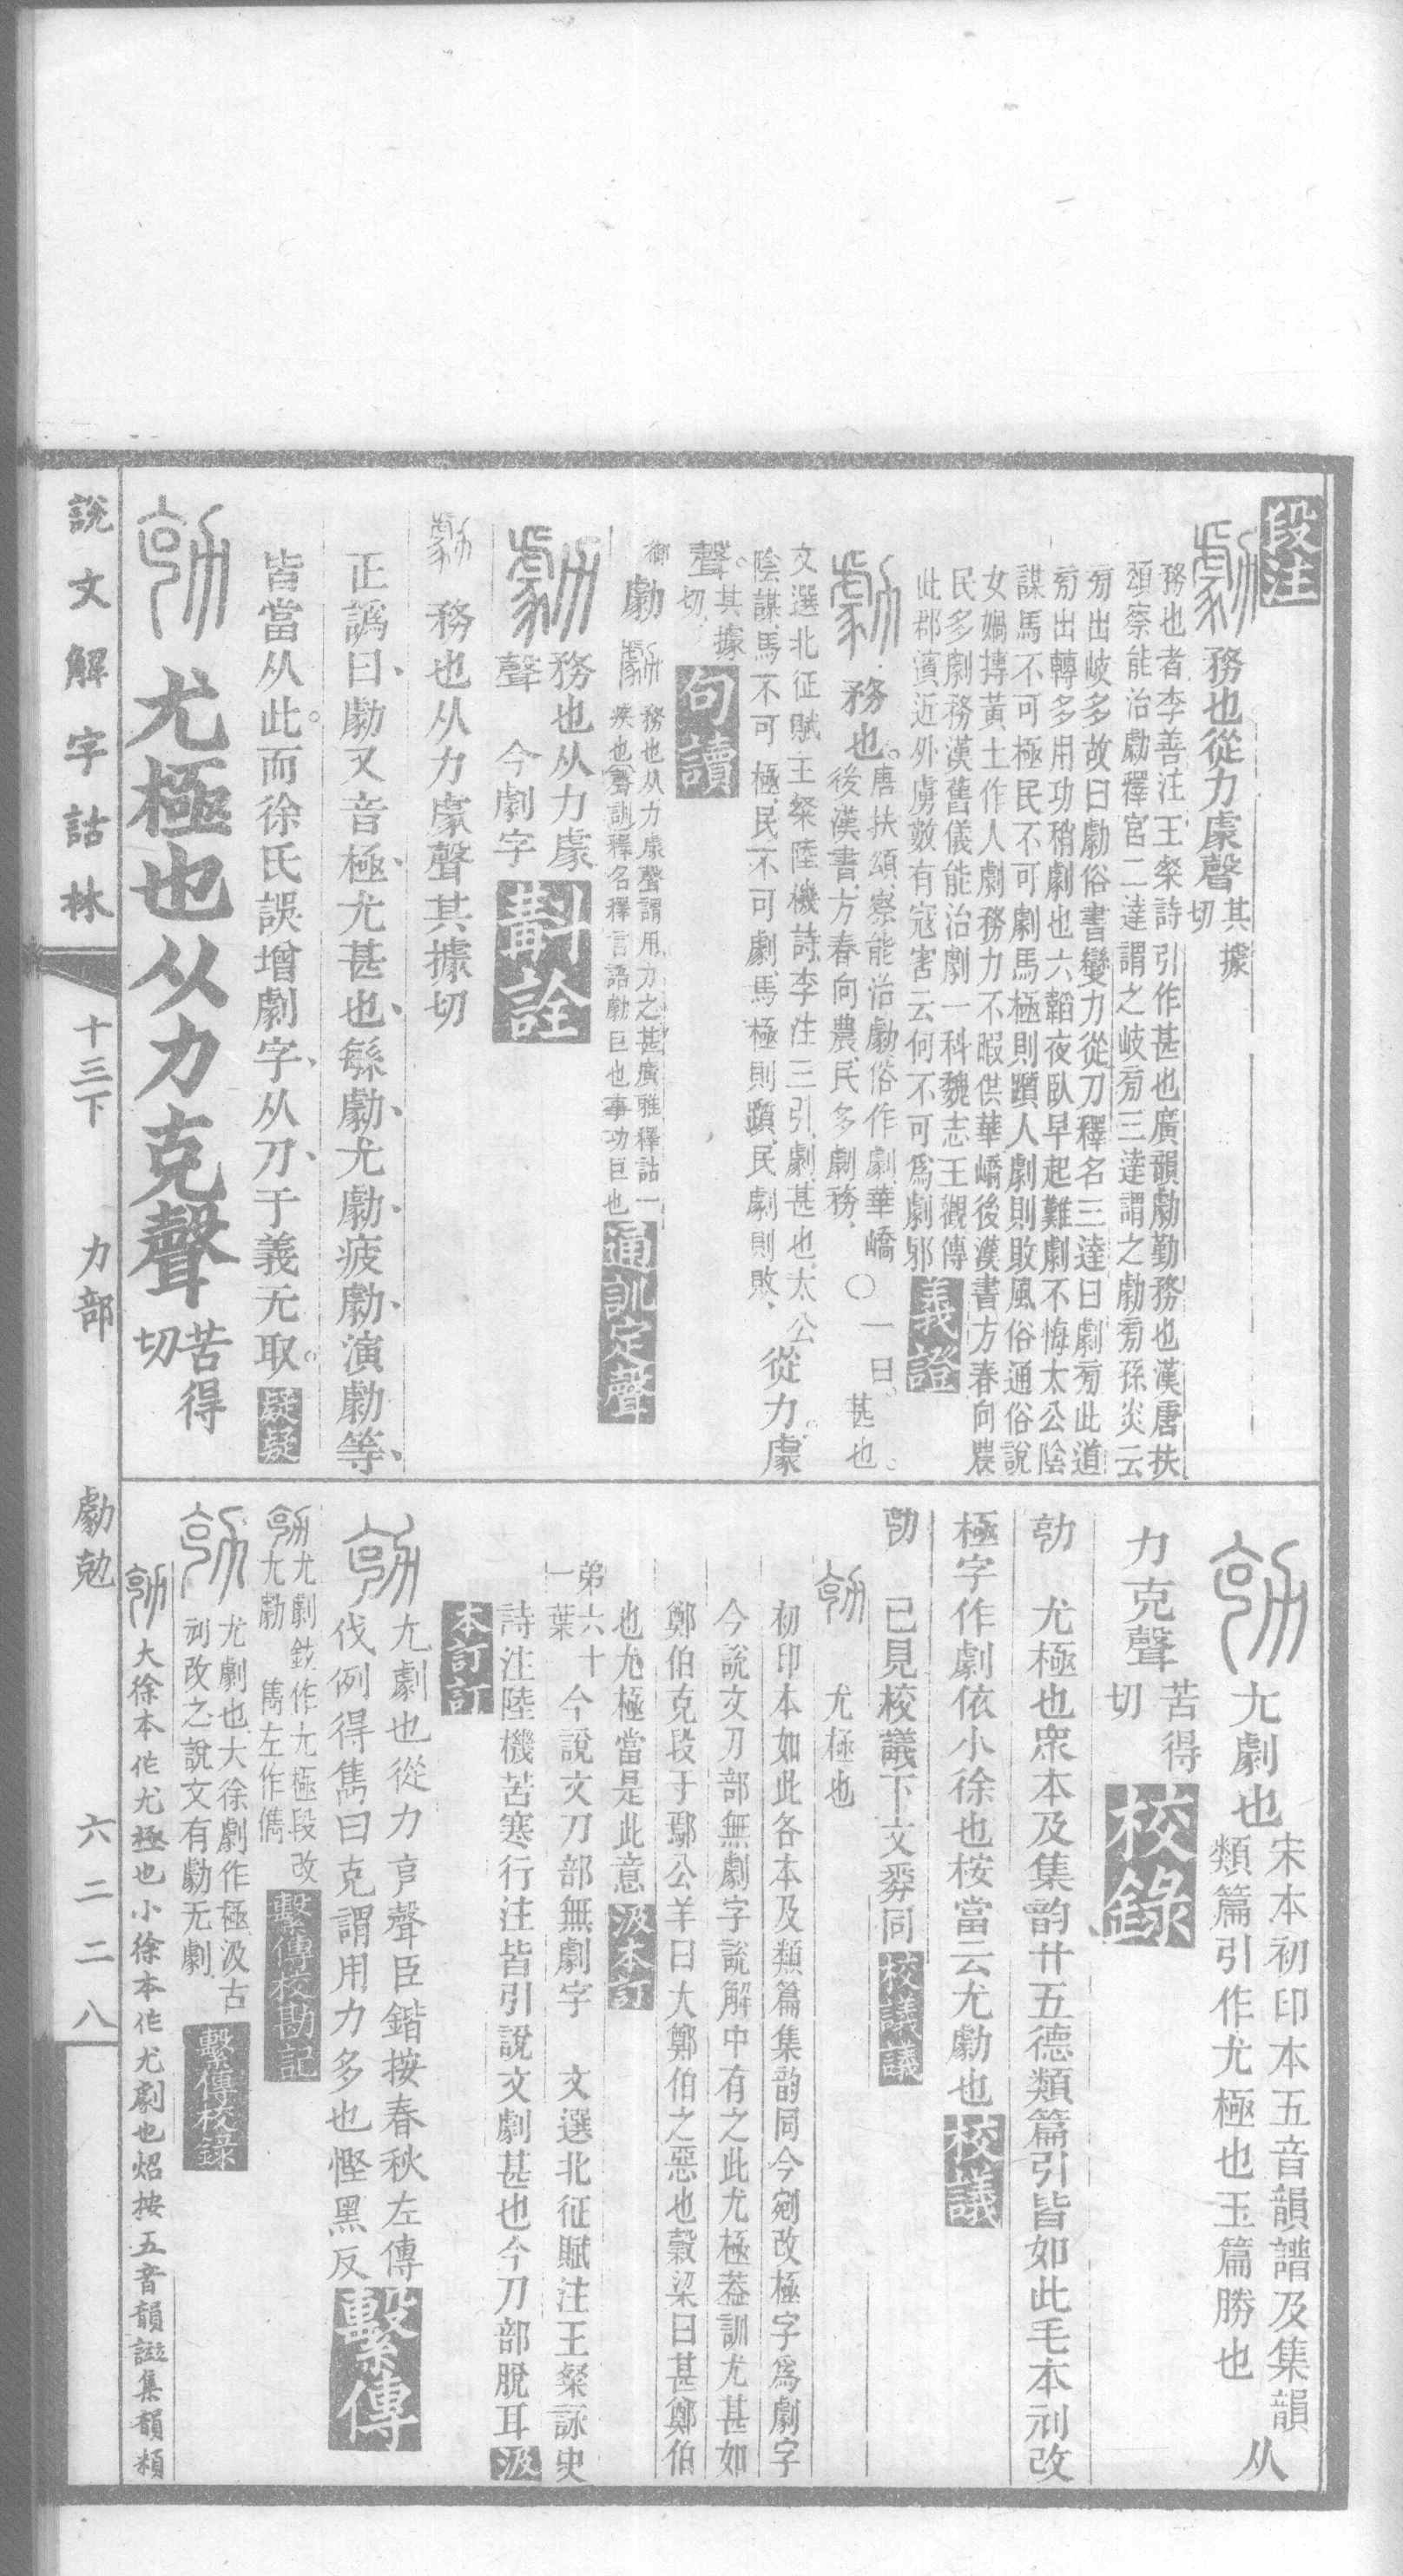 段注
務也從力豦聲其據切
務也者李善注王粲詩引作甚也廣韻勮勤務也漢唐扶
頌察能治勮釋宮二達謂之岐㫄三達謂之勮㫄孫炎云
㫄出岐多故曰勮俗書變力從刀釋名三達曰劇㫄此道
㫄出轉多用功稍劇也六韜夜臥早起難劇不悔太公陰
謀馬不可極民不可劇馬極則躓人劇則敗風俗通俗說
女媧摶黃土作人劇務力不暇供華嶠後漢書方春向農
民多劇務漢舊儀能治劇一科魏志王觀傳
此郡濱近外虜數有寇害云何不可爲劇邪義證
務也。唐扶頌察能治勮俗作劇華嶠
後漢書方春向農民多劇務、〇一曰。甚也。
文選北征賦王粲陸機詩李注三引劇甚也太公
陰謀馬不可極民不可劇馬極則躓民劇則敗、從力豦
聲。其據切句讀
御勮務也从力豦聲謂用力之甚廣雅釋詁一
疾也聲訓釋名釋言語勮巨也事功巨也通訓定聲
務也从力豦
聲 今劇字斠詮
務也从力豦聲其據切
正譌曰勮又音極尤甚也緐勮尤勮疲勮演勮等
皆當从此。而徐氏誤增劇字从刀于義无取。疑疑
尤極也从力克聲苦得切
尤劇也宋本初印本五音韻譜及集韻類篇引作尤極也玉篇勝也从
力克聲苦得切校錄
勀 尤極也衆本及集韵廿五德類篇引皆如此毛本刓改
極字作劇依小徐也桉當云尤勮也校議
勀 已見校議下文㣇同校議議
尤極也
初印本如此各本及類篇集韵同今剜改極字爲劇字
今說文刀部無劇字說解中有之此尤極葢訓尤甚如
鄭伯克段于鄢公羊曰大鄭伯之惡也穀梁曰甚鄭伯
也尤極當是此意汲本訂
弟六十一葉 今說文刀部無劇字 文選北征賦注王粲詠史
詩注陸機苦寒行注皆引說文劇甚也今刀部脫耳汲
本訂訂
尤劇也從力㐭聲臣鍇按春秋左傳
伐例得雋曰克謂用力多也慳黑反繫傳
尤劇鉉作尤極段改
尤勮 雋左作儁繫傳校勘記
尤劇也大徐劇作極汲古
刓改之說文有勮无劇繫傳校錄
大徐本作尤極也小徐本作尤劇也炤按五音韻譜集韻類
說文解字詁林 十三下 力部 勮勀 六二二八